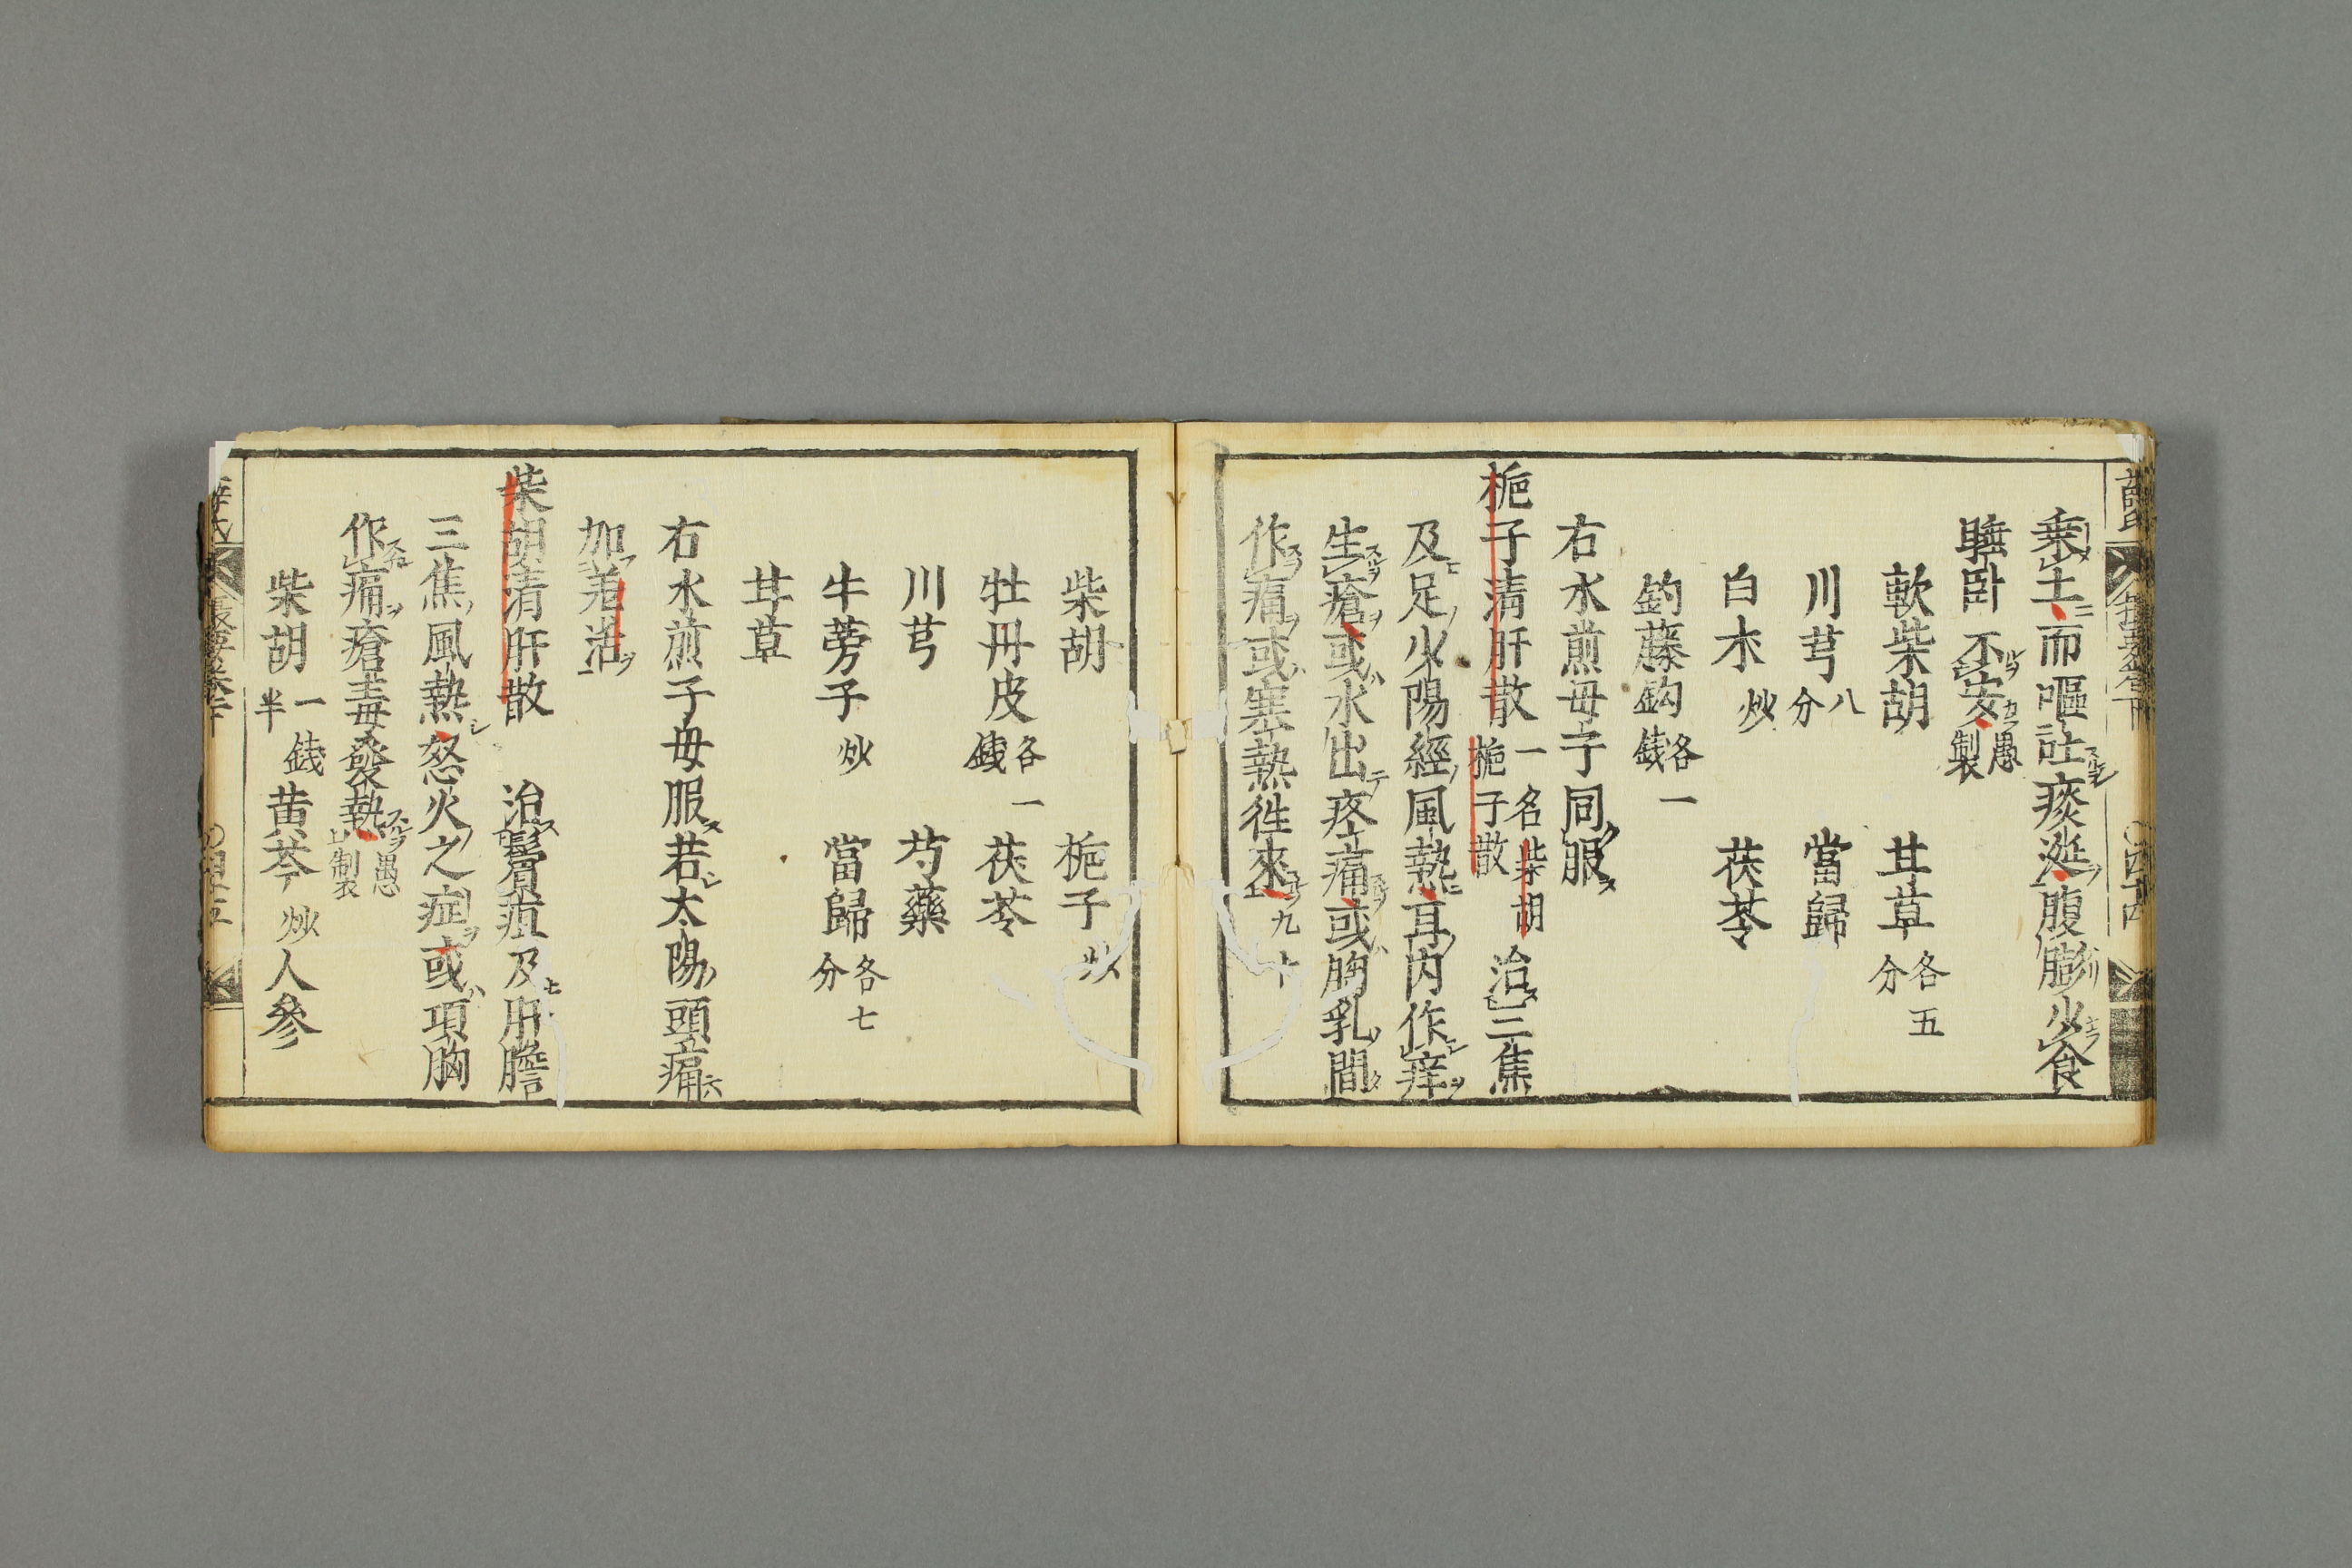 乗土而嘔吐痰涎腹膨少食
睡卧不安愚製
軟柴胡 甘草各五分
川芎八分 當歸
白朮炒 茯苓
釣藤鈎各一錢
右水煎毋子同服
梔子清肝散一名柴胡梔子散 治三焦
及足少陽經風熱耳内作痒
生瘡或水出疼痛或胸乳間
作痛或寒熱徃來九十
柴胡 梔子炒
牡丹皮各一錢 茯苓
川芎 芍藥
牛蒡子炒 當歸各七分
甘草
右水煎子毋服若太陽頭痛
加羌活
柴胡清肝散 治鬢疽及肝膽
三焦風熱怒火之症或項胸
作痛瘡毒發熱愚製
柴胡一錢半 黄芩炒 人參